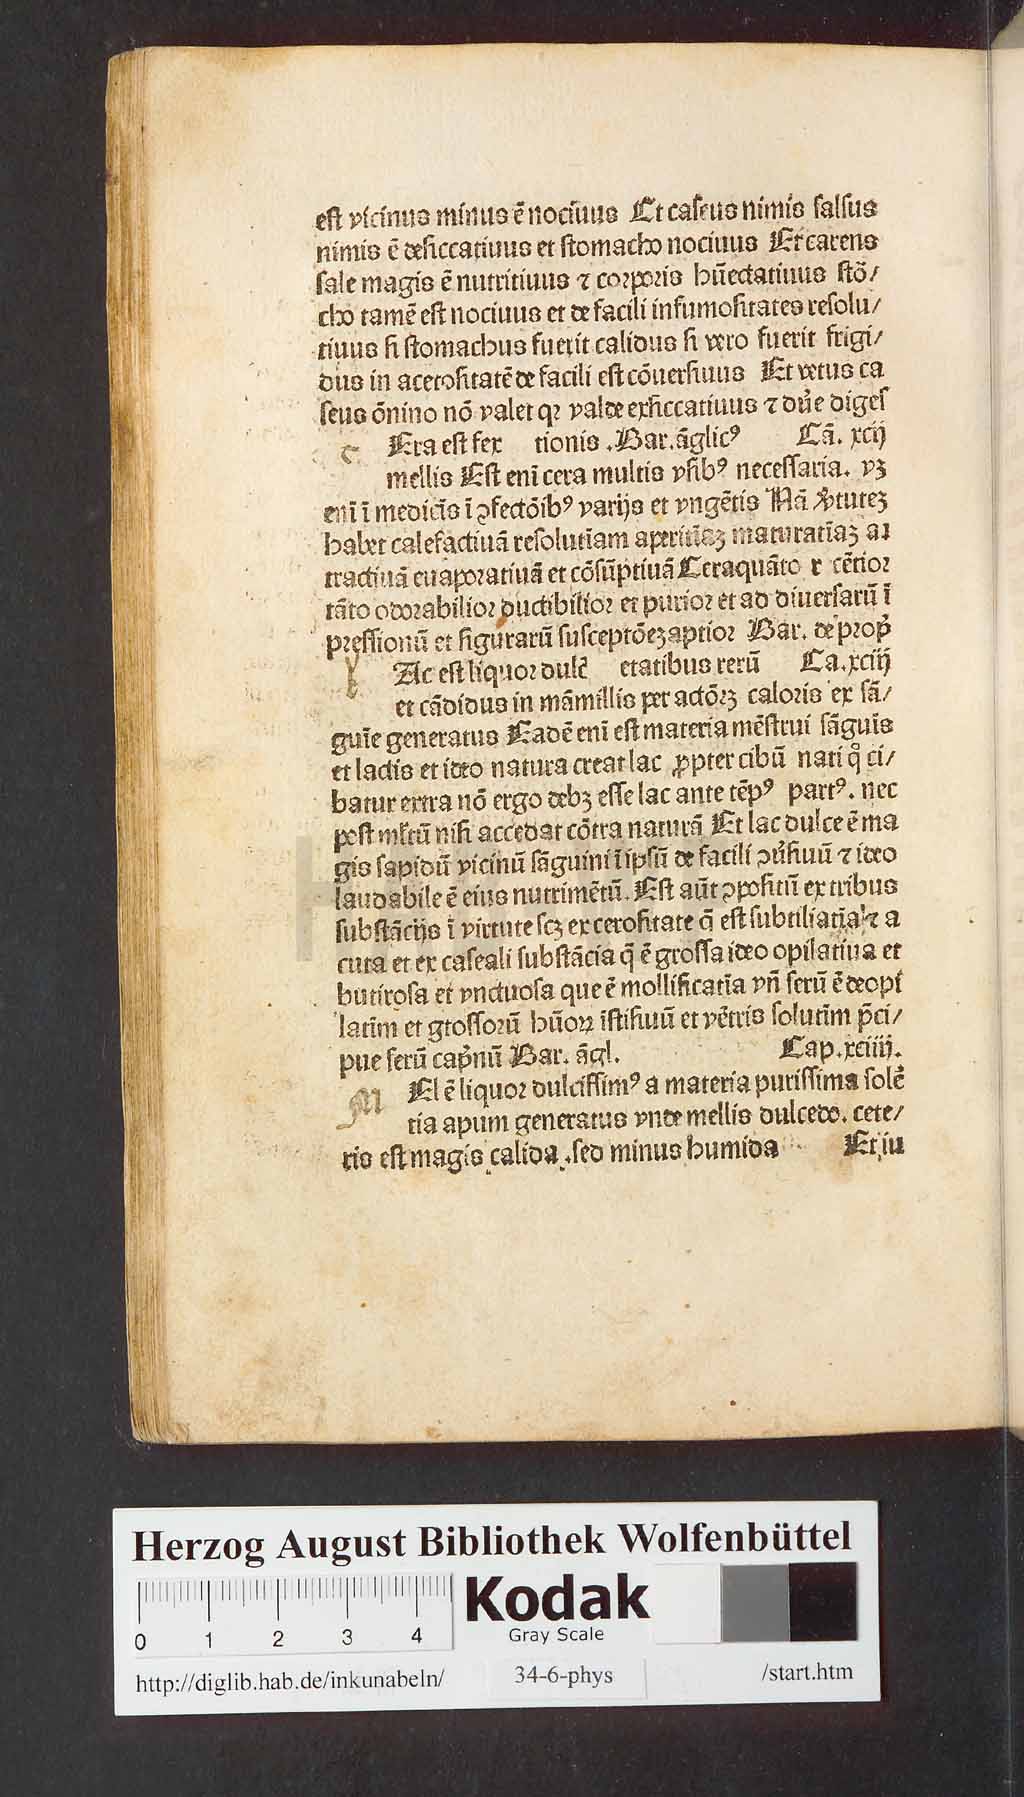 est vicinus minus ē nociuus Et caseus nimis salsus
nimis ē desiccatiuus et stomacho nociuus Et carens
sale magis ē nutritiuus ⁊ corporis hūectatiuus stō/
cho tamē est nociuus et de facili infumositates resolu/
tiuus si stomachus fuerit calidus si vero fuerit frigi/
dus in acetositatē de facili est cōuersiuus Et vetus ca
seus ōnino nō valet qꝛ valde exsiccatiuus ⁊ dur̄e diges
c Era est fex tionis .Bar. āglicꝰ Cā. xcij
mellis Est eni cera multis vsibꝰ necessaria. vꝫ
enī ī medicīs ī ꝯfectōibꝰ varijs et vngētis Nā v̓tuteꝫ
habet calefactiuā resolutiam aperitīaꝫ maturatīaꝫ at
tractiuā euaporatiuā et cōsūptiuā Cera quāto r cētior
tāto odorabilior ductibilior et purior et ad diuersarū ī
pressionū et figurarū susceptōeꝫ aptior Bar. de prop̄
l Ac est liquor dulc̄ etatibus rerū Ca. xciij
et cādidus in māmillis per actōꝝ caloris ex sā/
guīe generatus Eadē enī est materia mēstrui sāguīs
et lactis et ideo natura creat lac ꝓpter cibū nati q̊ ci/
batur extra nō ergo debꝫ esse lac ante tēpꝰ partꝰ. nec
post ml̄tū nisi accedat cōtra naturā Et lac dulce ē ma
gis sapidū vicinū sāguini ī ipsū de facili ꝯu̓siuū ⁊ ideo
laudabile ē eius nutrimētū. Est aūt ꝯpositū ex tribus
substācijs ī virtute scꝫ ex cerositate q̄ est subtiliatīa ⁊ a
cuta et ex caseali substācia q̄ ē grossa ideo opilatiua et
butirosa et vnctuosa que ē mollificatīa vn̄ serū ē deopi
latīm et gtossorū hūoꝝ īstisiuū et vētris solutīm p̄ci/
pue serū cap̄nū Bar. āgl. Cap. xciiij.
M El ē liquor dulcissimꝰ a materia purissima sole̓
tia apum generatus vnde mellis dulcedo. cete/
ris est magis calida .sed minus humida Et iu
Herzog August Bibliothek Wolfenbüttel
0 1 2 3 4
Kodak
Gray Scale
http://diglib.hab.de/inkunabeln/ 34-6-phys /start.htm